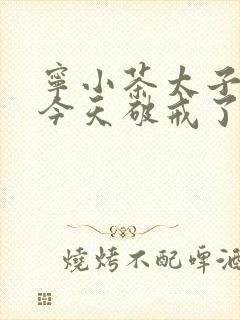 寧小茶太子
今天破戒了
燒烤不配啤酒